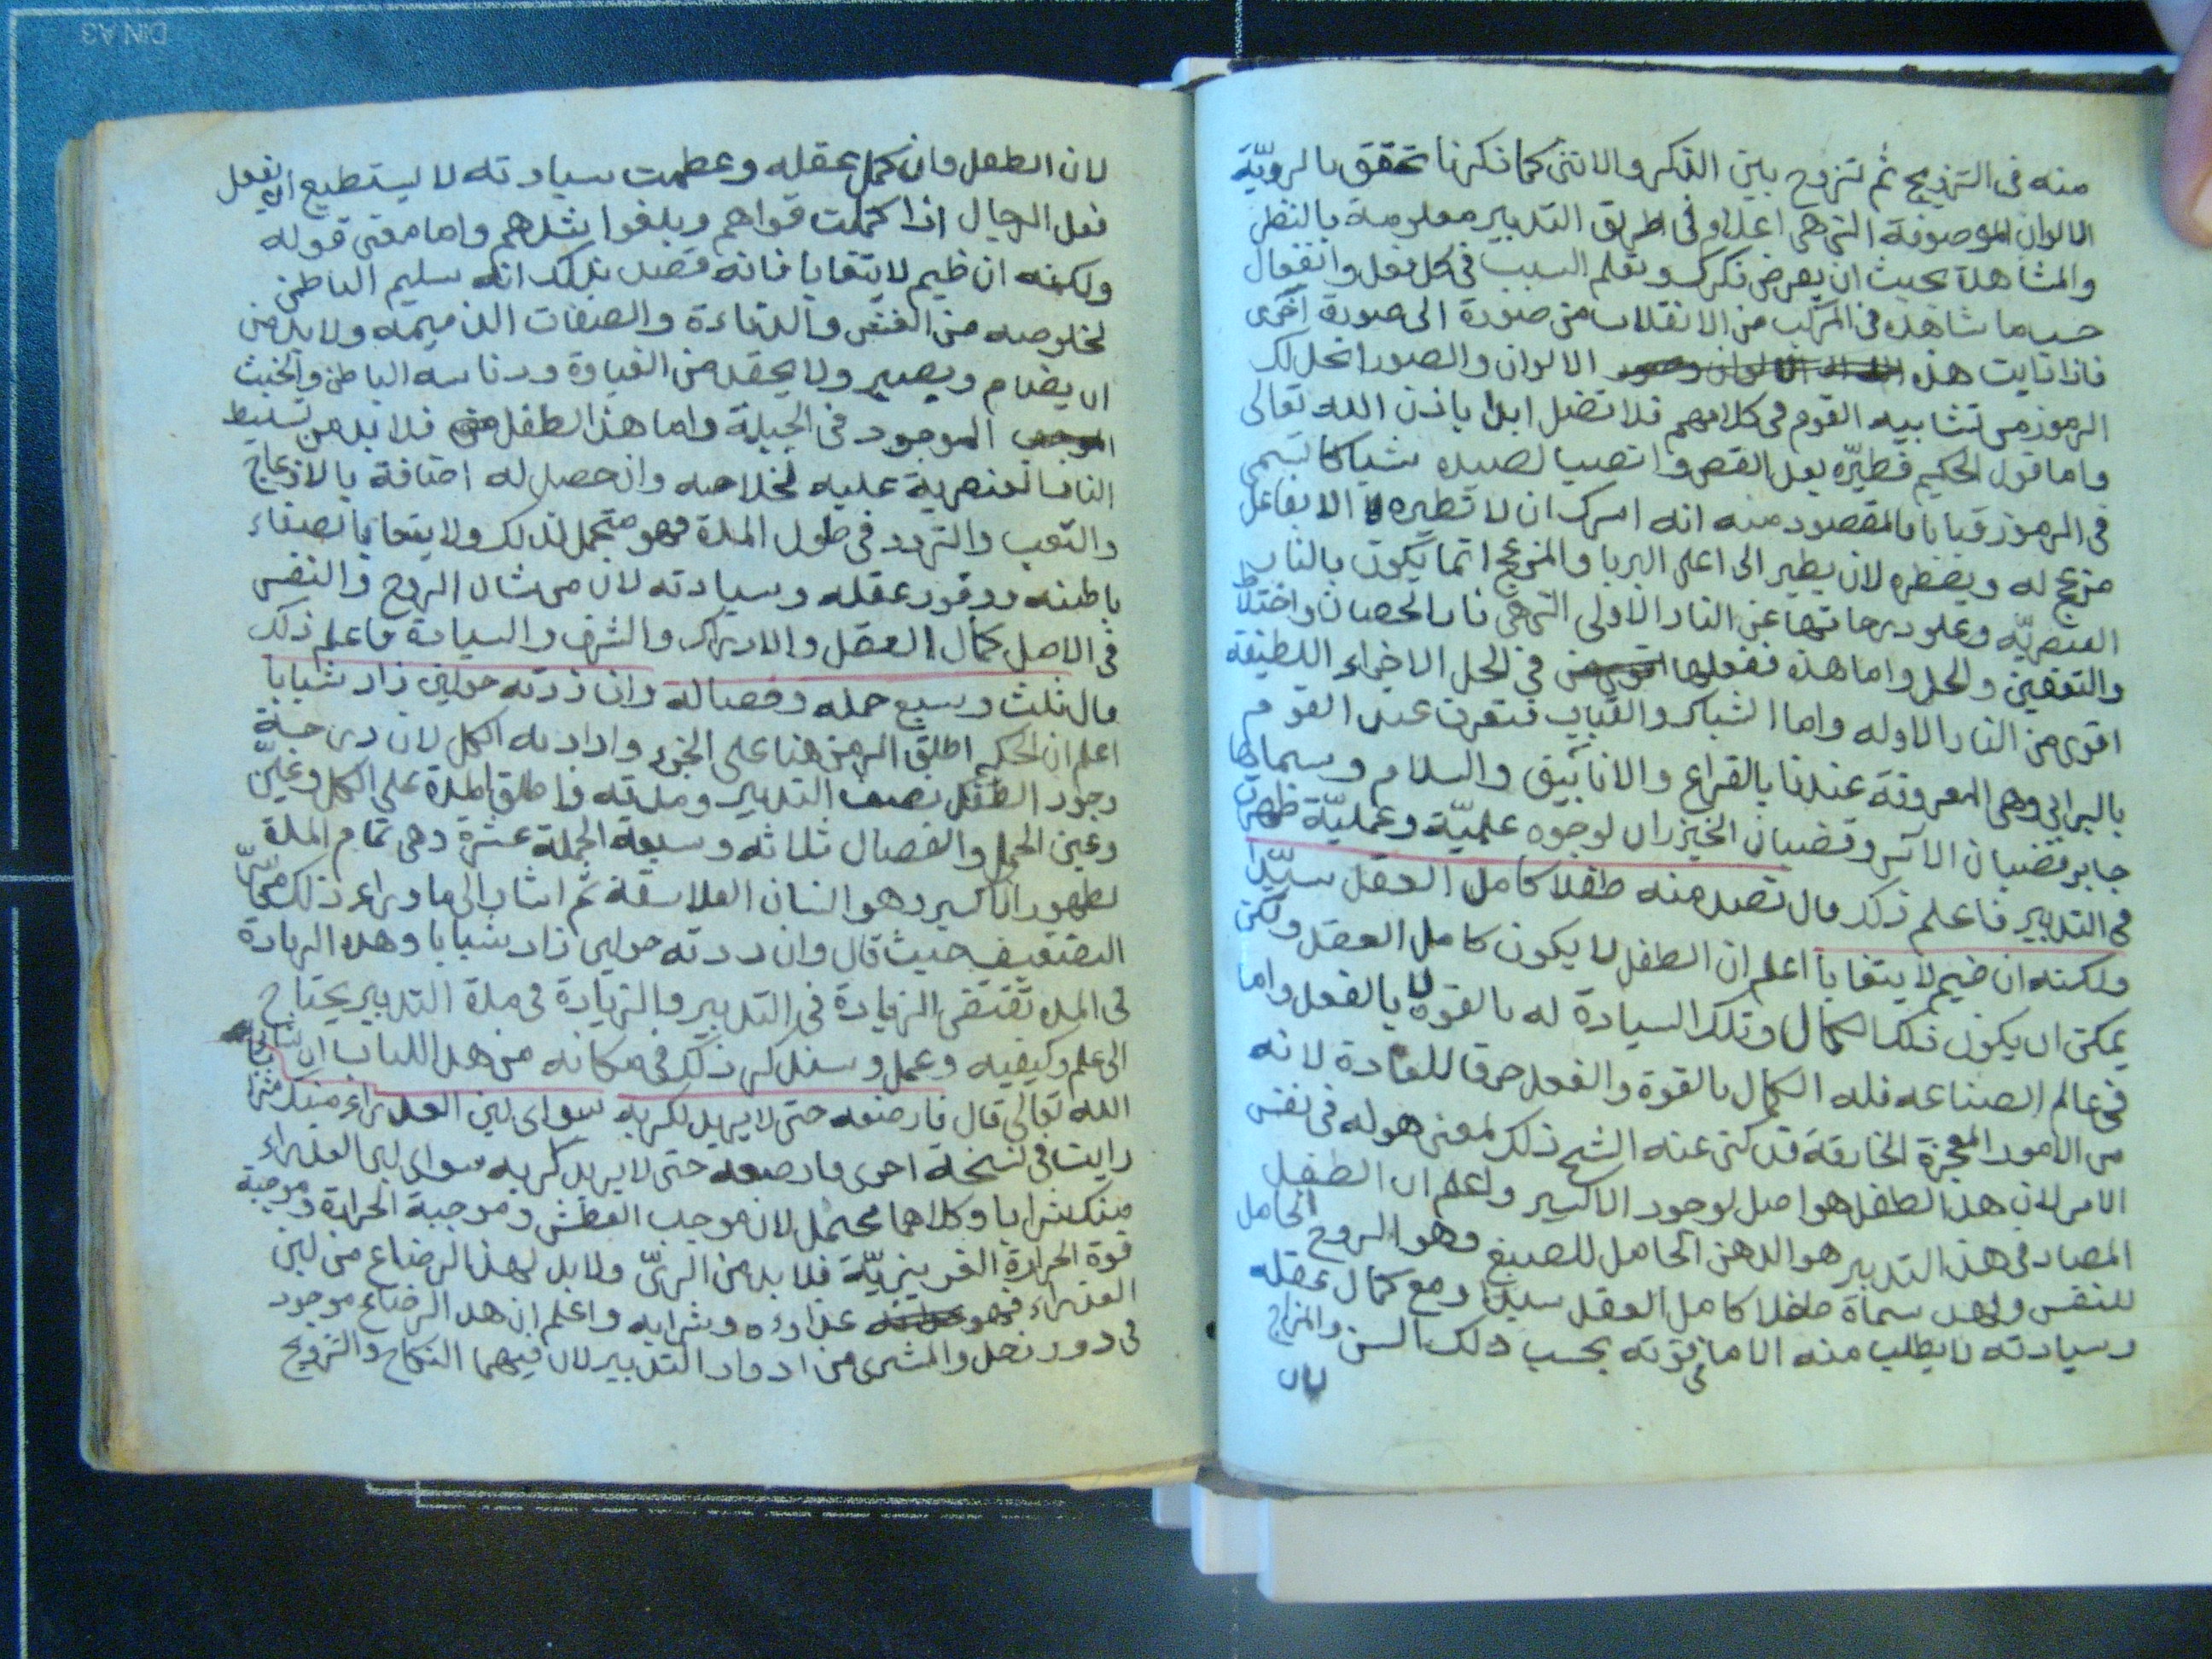 منه فى التزويج ثم تزوج بين الذكر والانثى كما ذكرنا تحقق بالرويّة
الالوان الموصوفة التى هى اعلام فى طريق التدبير معلومة بالنظر
والمشاهدة بحيث ان يعرض فكرك وتعلم السبب فى كل فعل وانفعال
حسب ما شاهده فى المركب من الانقلاب من صورة الى صورة اخرى
فاذا رايت هذه الالوان والصور انحل لك
الرموز من تشابيه القوم فى كلامهم فلا تضل ابدا باذن الله تعالى
واما قول الحكيم فطيّره بعد القص وانصب لصيده شباكا تسمى
فى الرموز قبابا فالمقصود منه انه امرك ان لا تطيره الا بفاعل
مزعج له ويضطره لان يطير الى اعلى البربا والمزعج انما يكون بالنار
العنصريّة وعلو درجاتها عن النار الاولى التى هى نار الحضان واختلا
والتعفين والحل واما هذه ففعلها فى الحل الاجزاء اللطيفة
اقوى من النار الاوله واما الشباك والقباب فتعرف عند القوم
بالبرابى وهى المعروفة عندنا بالقراع والانابيق والسلام وسماها
جابر قضبان الآس وقضبان الخيزران لوجوه علميّة وعمليّة ظهرت
فى التدبير فاعلم ذلك قال تصد منه طفلا كامل العقل سيّدا
ولكنه ان ضيم لا يتغابا اعلم ان الطفل لا يكون كامل العقل ولكن
يمكن ان يكون ذلك الكمال وتلك السيادة له بالقوة لا بالفعل واما
فى عالم الصناعه فله الكمال بالقوة والفعل خرقا للعادة لانه
من الامور المعجزة الخارقة قد كنى عنه الشيخ ذلك لمعنى هو له فى نفس
الامر لان هذا الطفل هو اصل لوجود الاكسير واعلم ان الطفل
المصاد فى هذا التدبير هو الدهن الحامل للصبغ وهو الروح الحامل
للنفس ولهذا سماه طفلا كامل العقل سيدا ومع كمال عقله
وسيادته لا يطلب منه الا ما فى قوته بحسب ذلك السن والمزاج
لان
لان الطفل وان كمل عقله وعظمت سيادته لا يستطيع ان يفعل
فعل الرجال اذا كملت قواهم وبلغوا اشدهم واما معنى قوله
ولكنه ان ظيم لا يتغابا فانه قصد بذلك انه سليم الباطن
لخلوصه من الغش والدناءة والصفات الذميمه ولا بد من
ان يضام ويصبر ولا يحقد من الغباوة ودناسه الباطن والخبث
الموجود فى الجبلة واما هذا الطفل فلا بد من تسليط
النار العنصرية عليه لخلاصه وان حصل له اضافة بالازعاج
والتعب والتردد فى طول المدة فهو متحمل لذلك ولا يتغابا لصفاء
باطنه ووقور عقله وسيادته لان من شان الروح والنفس
فى الاصل كمال العقل والادراك والشرف والسيادة فاعلم ذلك
قال ثلث وسبع حمله وفصاله وان زدته حولين زاد شبابا
اعلم ان الحكيم اطلق الرمز هنا على الجزء واراد به الكل لان درجة
وجود الطفل نصف التدبير ومدته واطلق المدة على الكل وعيّن
وعين الحمل والفصال ثلاثه وسبعة الجملة عشرة وهى تمام المدة
لظهور الاكسير وهو انسان الفلاسفة ثم اشار الى ما وراء ذلك من سرّ
التضعيف حيث قال وان زدته حولين زاد شبابا وهذه الزيادة
فى المده تقتضى الزيادة فى التدبير والزيادة فى مدة التدبير يحتاج
الى علم وكيفيه وعمل وسنذكر ذلك فى مكانه من هذا الكتاب ان شاء
الله تعالى قال فارضعه حتى لا يريد لكربه سوى لبن العذراء منك شرابا
رايت فى نسخة اخرى فارضعه حتى لا يريد لكربه سوى لبن العذراء
منك شرابا وكلاهما محتمل لان موجب العطش وموجبة الحرارة وموجبة
قوة الحرارة الغريزيّة فلا بد من الرىّ ولا بد لهذا الرضاع من لبن
العذراء فهو غذاؤه وشرابه واعلم ان هذا الرضاع موجود
فى دور زحل والمشترى من ادوار التدبير لان فيهما النكاح والتزويج